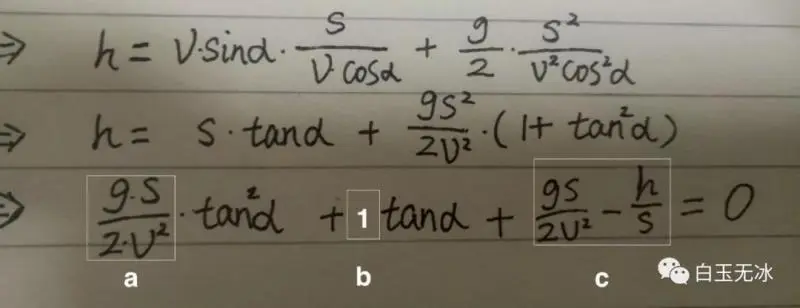 ⇒ h = v·sinα · s/(v·cosα) + g/2 · s²/(v²cos²α)
⇒ h = s·tanα + gs²/(2v²)·(1+tan²α)
⇒ g·s/(2·v²)·tan²α + 1 tanα + gs/(2v²) − h/s = 0
a b c
白玉无冰